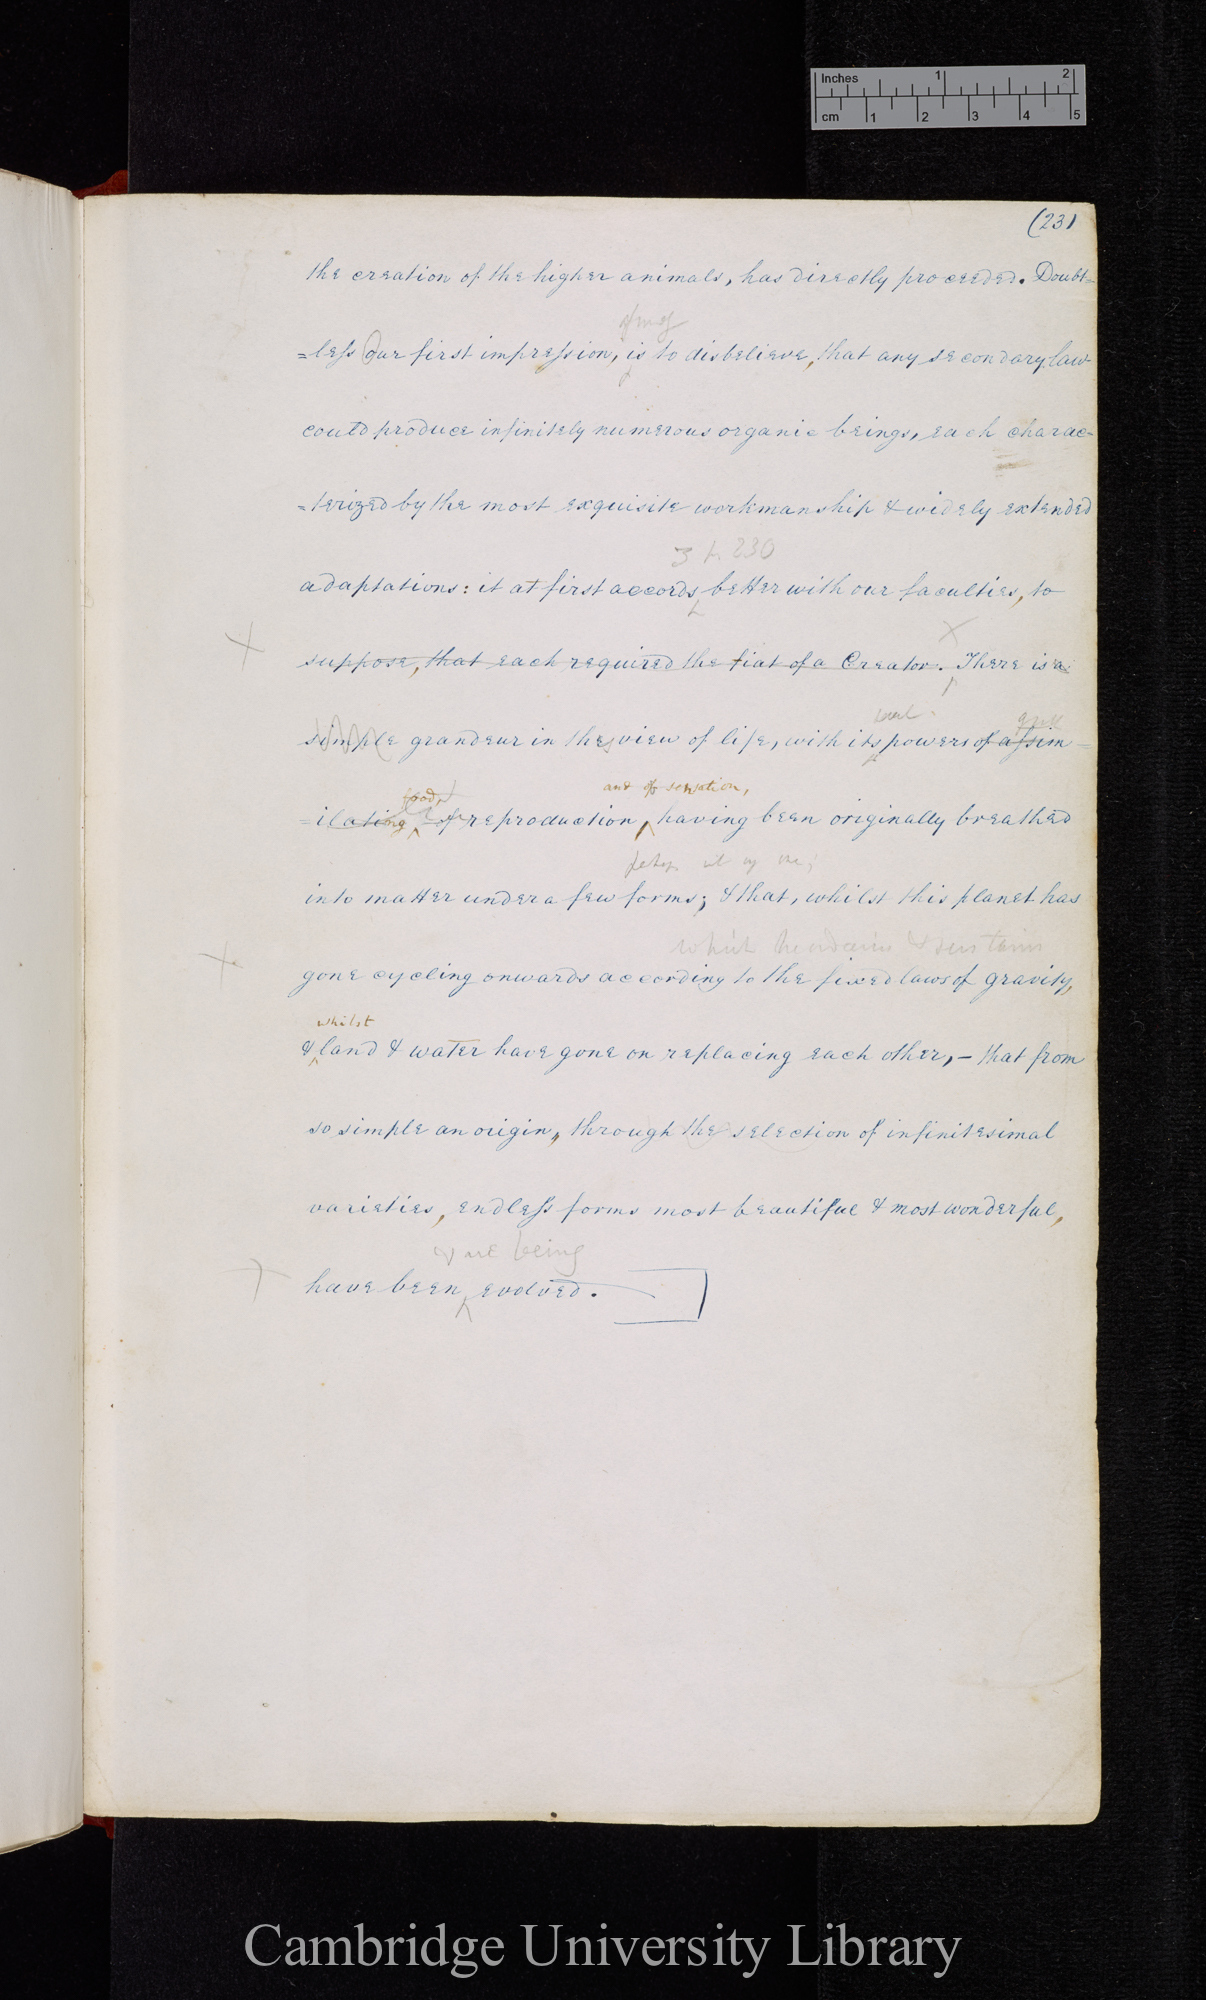 Inches 1 2
cm 1 2 3 4 5
(231
the creation of the higher animals, has directly proceeded. Doubt=
=less Our first impression, is to disbelieve, that any secondary law
could produce infinitely numerous organic beings, each charac=
=terized by the most exquisite workmanship & widely extended
230
adaptations: it at first accords better with our faculties, to
suppose, that each required the fiat of a Creator. There is a
simple grandeur in the view of life, with its powers of assim=
food, and of sensation,
=ilating & of reproduction, having been originally breathed
into matter under a few forms; & that, whilst this planet has
which he &
gone cycling onwards according to the fixed laws of gravity,
whilst
& land & water have gone on replacing each other,— that from
so simple an origin, through the selection of infinitesimal
varieties, endless forms most beautiful & most wonderful,
& are being
have been evolved.
Cambridge University Library